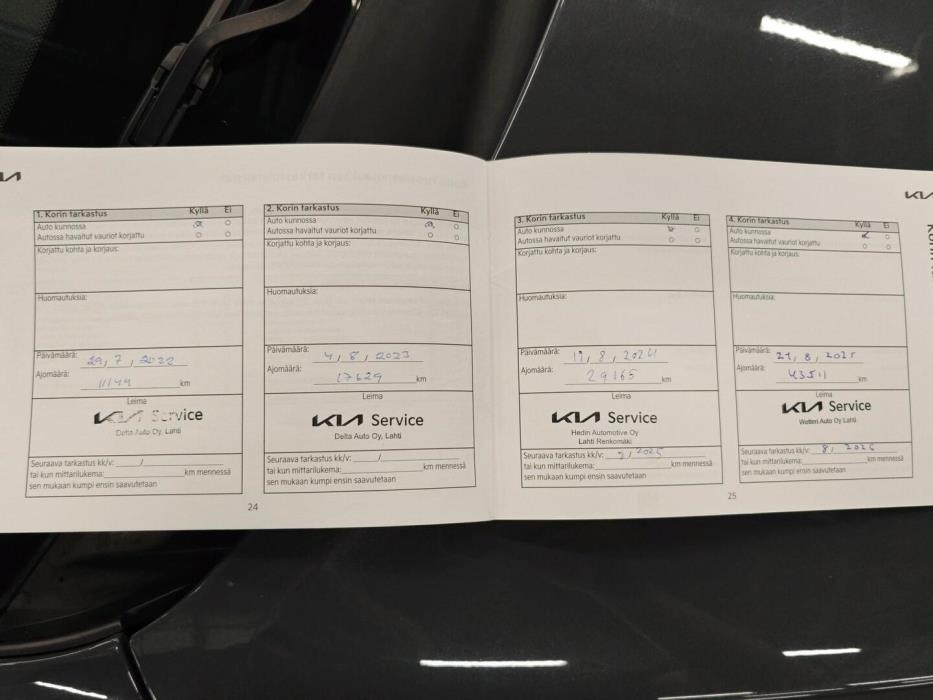 KIA
1. Korin tarkastus Kyllä Ei
Auto kunnossa
Autossa havaitut vauriot korjattu
Korjattu kohta ja korjaus:
Huomautuksia:
Päivämäärä: 29, 7, 2022
Ajomäärä: 11149 km
Leima
KIA Service
Delta Auto Oy, Lahti
Seuraava tarkastus kk/v: /
tai kun mittarilukema: km mennessä
sen mukaan kumpi ensin saavutetaan
2. Korin tarkastus Kyllä Ei
Auto kunnossa
Autossa havaitut vauriot korjattu
Korjattu kohta ja korjaus:
Huomautuksia:
Päivämäärä: 4, 8, 2023
Ajomäärä: 17629 km
Leima
KIA Service
Delta Auto Oy, Lahti
Seuraava tarkastus kk/v: /
tai kun mittarilukema: km mennessä
sen mukaan kumpi ensin saavutetaan
24
3. Korin tarkastus Kyllä Ei
Auto kunnossa
Autossa havaitut vauriot korjattu
Korjattu kohta ja korjaus:
Huomautuksia:
Päivämäärä: 8, 2024
Ajomäärä: 29165 km
Leima
KIA Service
Hedin Automotive Oy
Lahti Renkomäki
Seuraava tarkastus kk/v: 2025
tai kun mittarilukema: km mennessä
sen mukaan kumpi ensin saavutetaan
KIA
4. Korin tarkastus Kyllä Ei
Auto kunnossa
Autossa havaitut vauriot korjattu
Korjattu kohta ja korjaus:
Huomautuksia:
Päivämäärä: 21, 8, 2025
Ajomäärä: 43511 km
Leima
KIA Service
Wetteri Auto Oy, Lahti
Seuraava tarkastus kk/v: 8, 2026
tai kun mittarilukema: km mennessä
sen mukaan kumpi ensin saavutetaan
25